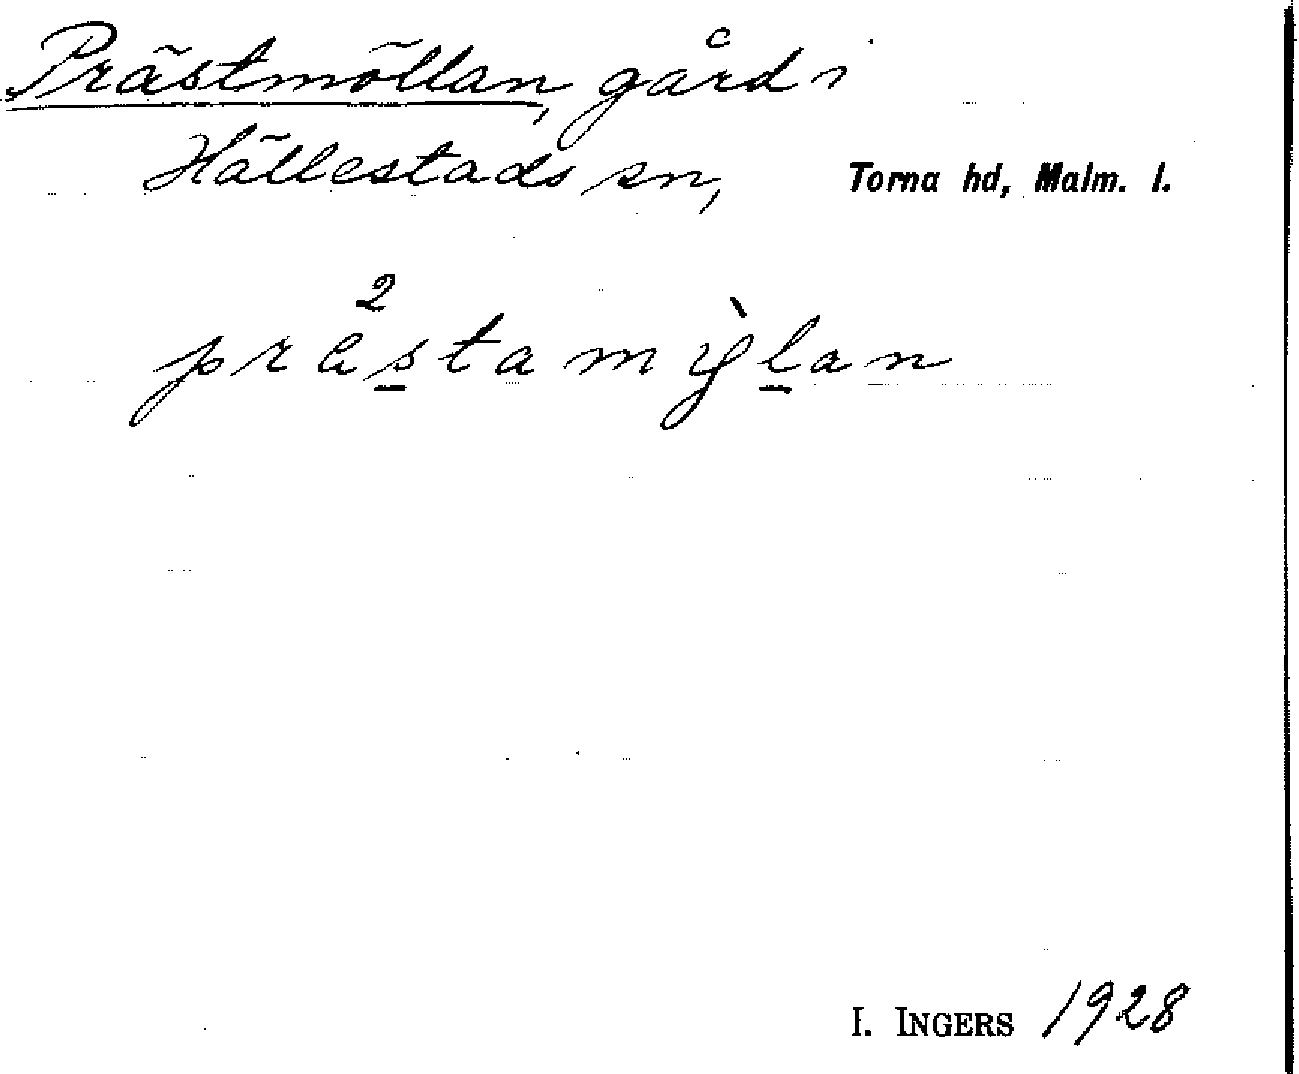 Prästmöllan, gård i
Hällestads sn, Torna hd, Malm. l.
prästamỳlan
I. INGERS 1928